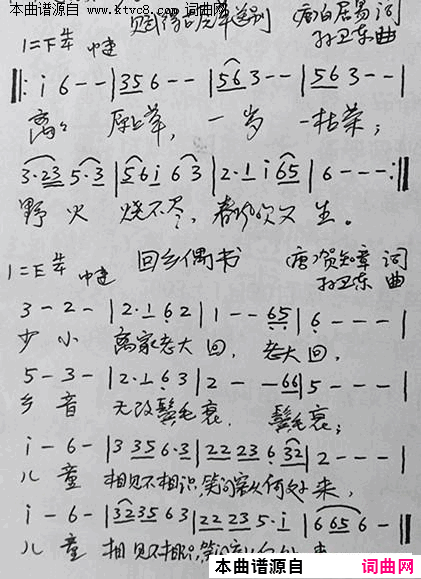 本曲谱源自 www.ktvc8.com 词曲网
赋得古原草送别 唐白居易词
1=F 4/4 中速 孙卫东曲
‖: i 6 - - | 35 6 - - | 56 3 - - | 56 3 - - |
离离 原上草, 一岁 一枯荣;
3·23 5·3 | 56i 63 | 2·1 i 65 | 6 - - - :‖
野火 烧不尽, 春风吹又生。
1=E 4/4 中速 回乡偶书 唐贺知章 词
孙卫东 曲
3 - 2 - | 2·1 6 2 | 1 - - 65 | 6 - - - |
少 小 离家老大 回, 老大 回,
5 - 3 - | 2·1 6 3 | 2 - - 66 | 5 - - - |
乡 音 无改鬓毛 衰, 鬓毛 衰;
i - 6 - | 3 35 6·3 | 22 23 6 32 | 2 - - - |
儿 童 相见不相识,笑问客从何处 来,
i - 6 - | 3235 63 | 22 23 5· i | 6 65 6 - ‖
儿 童 相见不相识,笑问客从何处 来
本曲谱源自 词曲网